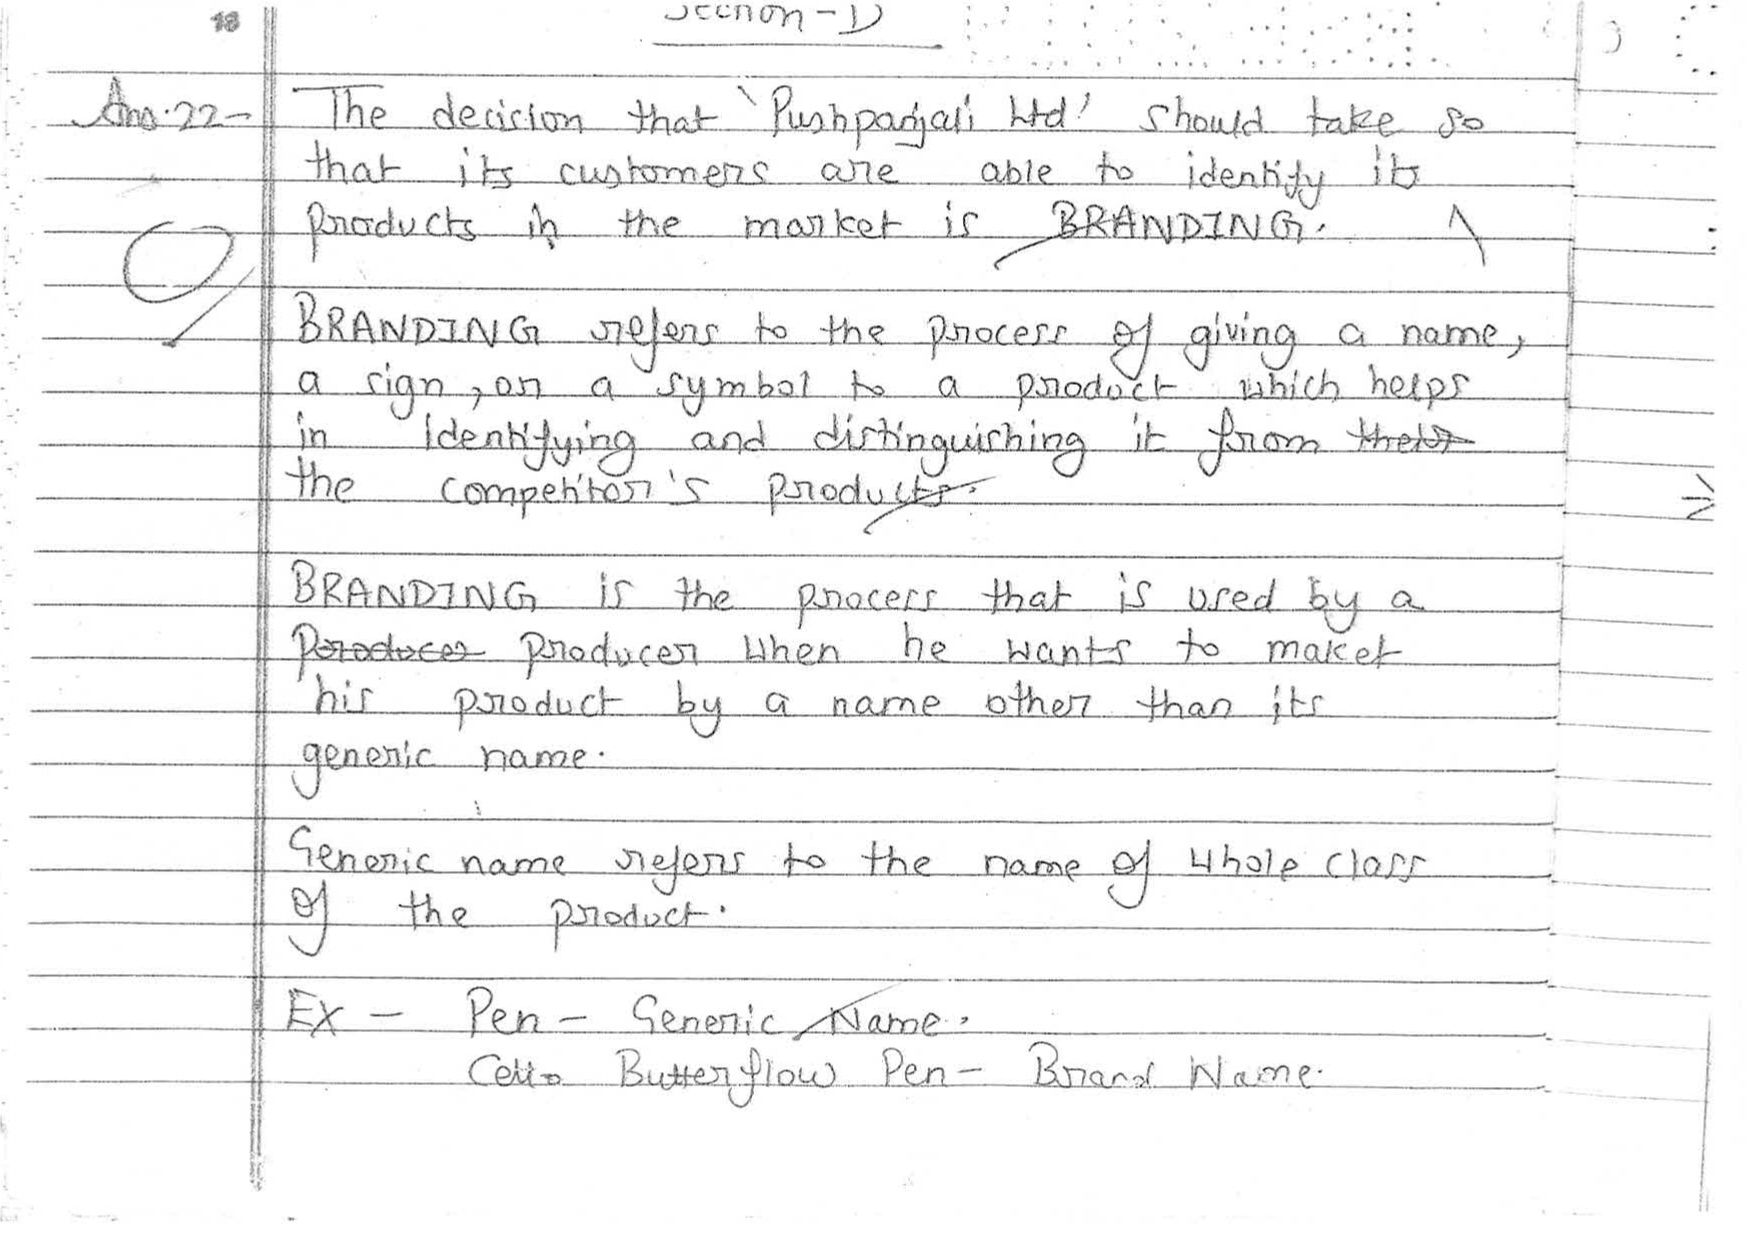 18
Section - D
Ans.22- The decision that 'Pushpanjali Ltd' should take so
that its customers are able to identify its
products in the market is BRANDING.
BRANDING refers to the process of giving a name,
a sign, or a symbol to a product which helps
in identifying and distinguishing it from
the competitor's products.
BRANDING is the process that is used by a
Producer producer when he wants to maket
his product by a name other than its
generic name.
Generic name refers to the name of whole class
of the product.
EX - Pen - Generic Name.
Cello Butterflow Pen - Brand Name.